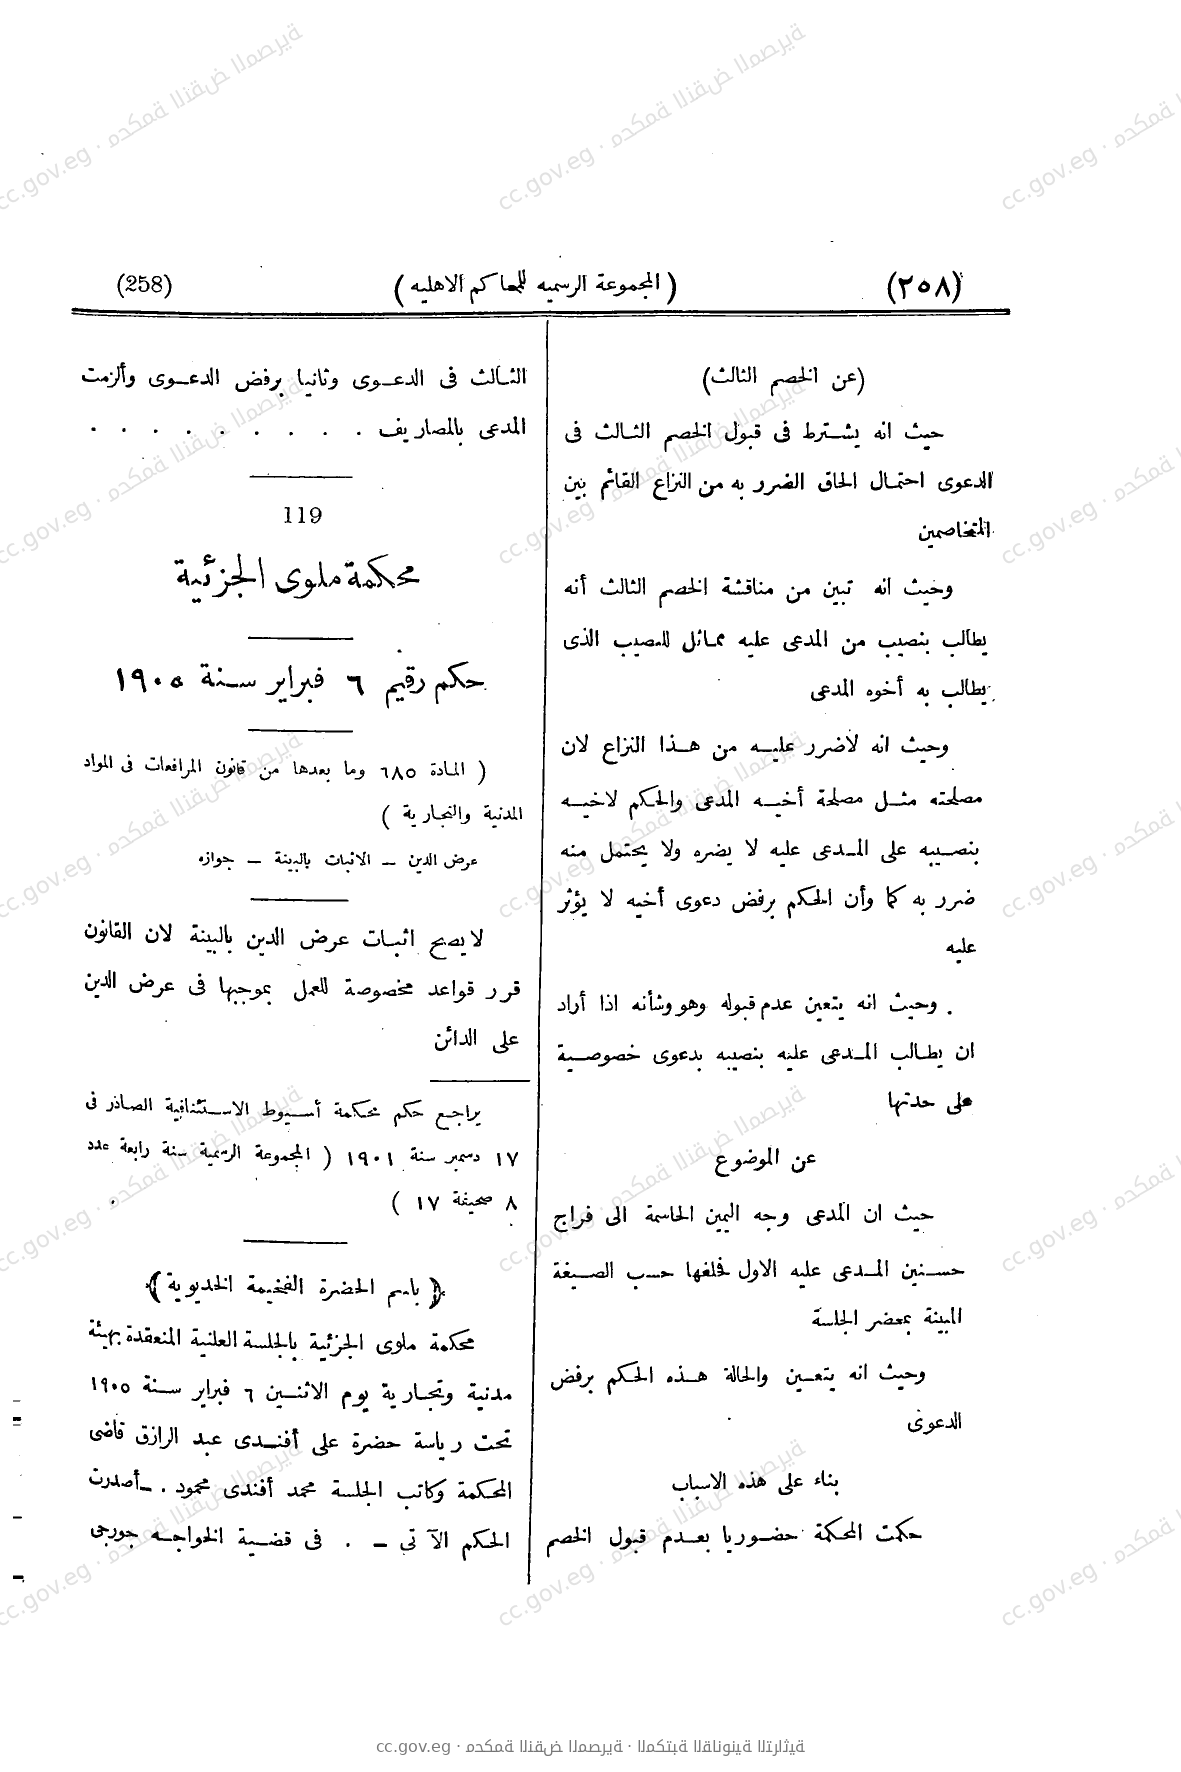 (٢٥٨)
( المجموعة الرسميه للمحاكم الاهليه )
(258)
(عن الخصم الثالث)
حيث انه يشترط فى قبول الخصم الثالث فى
الدعوى احتمال الحاق الضرر به من النزاع القائم بين
المتخاصمين
وحيث انه تبين من مناقشة الخصم الثالث أنه
يطالب بنصيب من المدعى عليه مماثل للنصيب الذى
يطالب به أخوه المدعى
وحيث انه لاضرر عليه من هذا النزاع لان
مصلحته مثل مصلحة أخيه المدعى والحكم لاخيه
بنصيبه على المدعى عليه لا يضره ولا يحتمل منه
ضرر به كما وأن الحكم برفض دعوى أخيه لا يؤثر
عليه
وحيث انه يتعين عدم قبوله وهو وشأنه اذا أراد
ان يطالب المدعى عليه بنصيبه بدعوى خصوصية
على حدتها
عن الموضوع
حيث ان المدعى وجه اليمين الحاسمة الى فراج
حسنين المدعى عليه الاول فحلفها حسب الصيغة
المبينة بمحضر الجلسة
وحيث انه يتعين والحالة هذه الحكم برفض
الدعوى
بناء على هذه الاسباب
حكمت المحكمة حضوريا بعدم قبول الخصم
الثالث فى الدعوى وثانيا برفض الدعوى وألزمت
المدعى بالمصاريف . . . . . . . . .
119
محكمة ملوى الجزئية
حكم رقيم ٦ فبراير سنة ١٩٠٥
( المادة ٦٨٥ وما بعدها من قانون المرافعات فى المواد
المدنية والتجارية )
عرض الدين – الاثبات بالبينة – جوازه
لا يصح اثبات عرض الدين بالبينة لان القانون
قرر قواعد مخصوصة للعمل بموجبها فى عرض الدين
على الدائن
يراجع حكم محكمة أسيوط الاستئنافية الصادر فى
١٧ دسمبر سنة ١٩٠١ ( المجموعة الرسمية سنة رابعة عدد
٨ صحيفة ١٧ )
﴿ باسم الحضرة الفخيمة الخديوية ﴾
محكمة ملوى الجزئية بالجلسة العلنية المنعقدة بهيئة
مدنية وتجارية يوم الاثنين ٦ فبراير سنة ١٩٠٥
تحت رياسة حضرة على أفندى عبد الرازق قاضى
المحكمة وكاتب الجلسة محمد أفندى محمود . – أصدرت
الحكم الآتى – . فى قضية الخواجه جورجى
cc.gov.eg · محكمة النقض المصرية · المكتبة القانونية التراثية